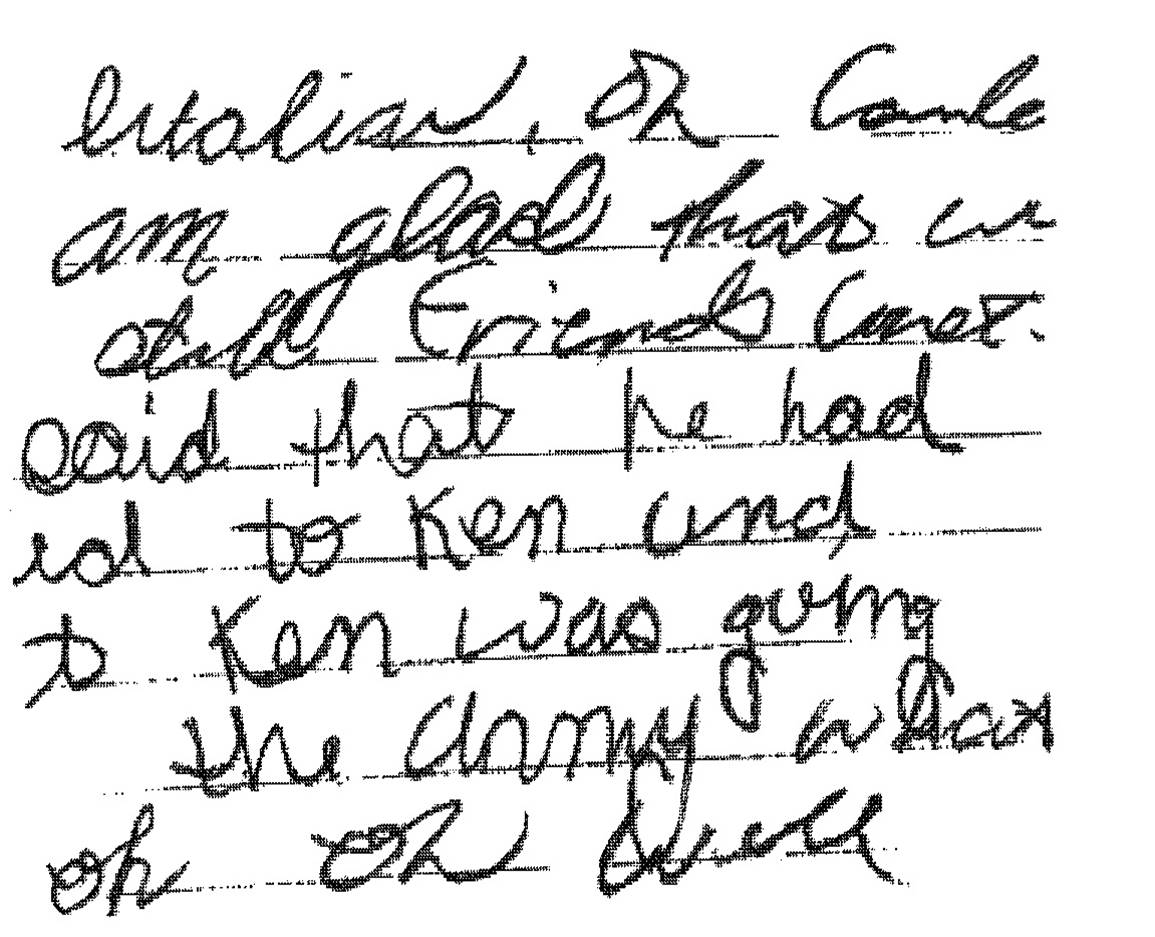 Italian, Oh Carole
am glad that we
still Friends Curet.
said that he had
ed to Ken and
t Ken was going
the army what
oh Oh well